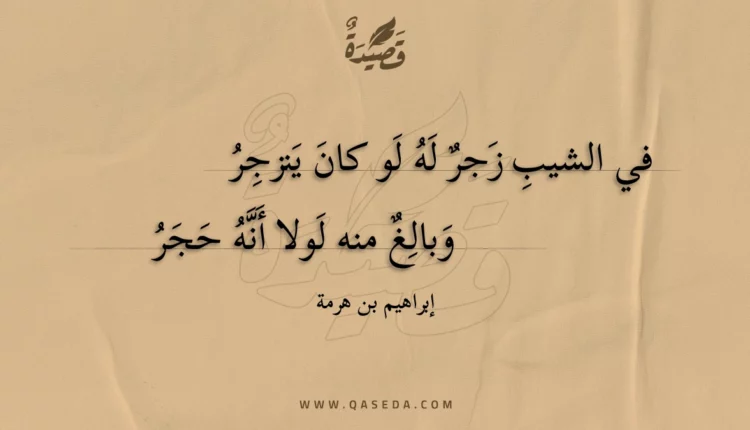 قَصِيْدَةٌ
في الشيبِ زَجرٌ لَهُ لَو كانَ يَنزجِرُ
وَبالِغٌ منه لَولا أَنَّهُ حَجَرُ
إبراهيم بن هرمة
WWW.QASEDA.COM